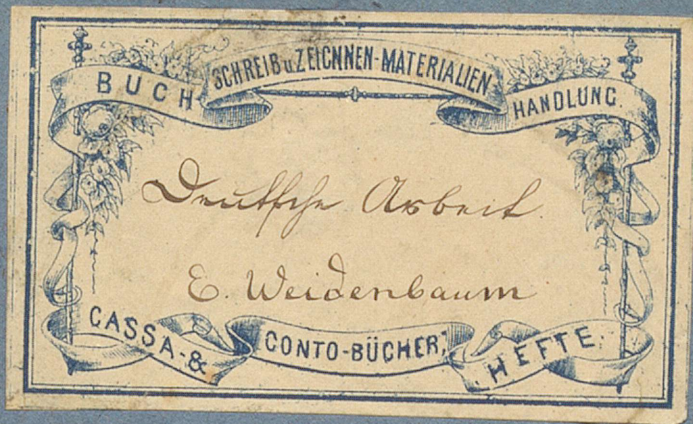 BUCH SCHREIB u ZEICNNEN-MATERIALIEN HANDLUNG.
Deutsche Arbeit.
E. Weidenbaum
CASSA-& CONTO-BÜCHER, HEFTE.